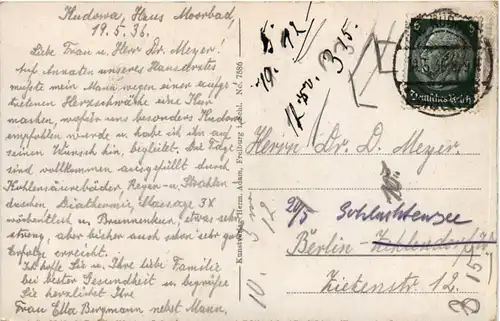 Kudowa, Haus Moorbad,
19.5.36.
Liebe Frau u. Herr Dr. Meyer!
Auf Anraten unseres Hausarztes
mußte mein Mann wegen einer aufge-
tretenen Herzschwäche eine Kur
machen, wofür uns besonders Kudowa
empfohlen wurde u. habe ich ihn auf
seinen Wunsch hin, begleitet. Die Tage
sind vollkommen ausgefüllt durch
Kohlensäurebäder, Regen- u. Strahlen
duschen, Diathermie, Massage 3X
wöchentlich u. Brunnenkur, etwas sehr
streng, aber bisher auch schon sehr gute
Erfolge erreicht.
Ich hoffe Sie u. Ihre liebe Familie
bei bester Gesundheit u. begrüße
Sie herzlichst Ihre
Frau Ella Bergmann nebst Mann,
Kunstverlag Herm. Adam, Freiburg
No. 7886
5.
19. 12
12.50.
335.
5
Deutsches Reich
Herrn Dr. D. Meyer.
10.
20/5 Schlachtensee
Berlin-Zehlendorf
Zietenstr. 12.
10. 3
12